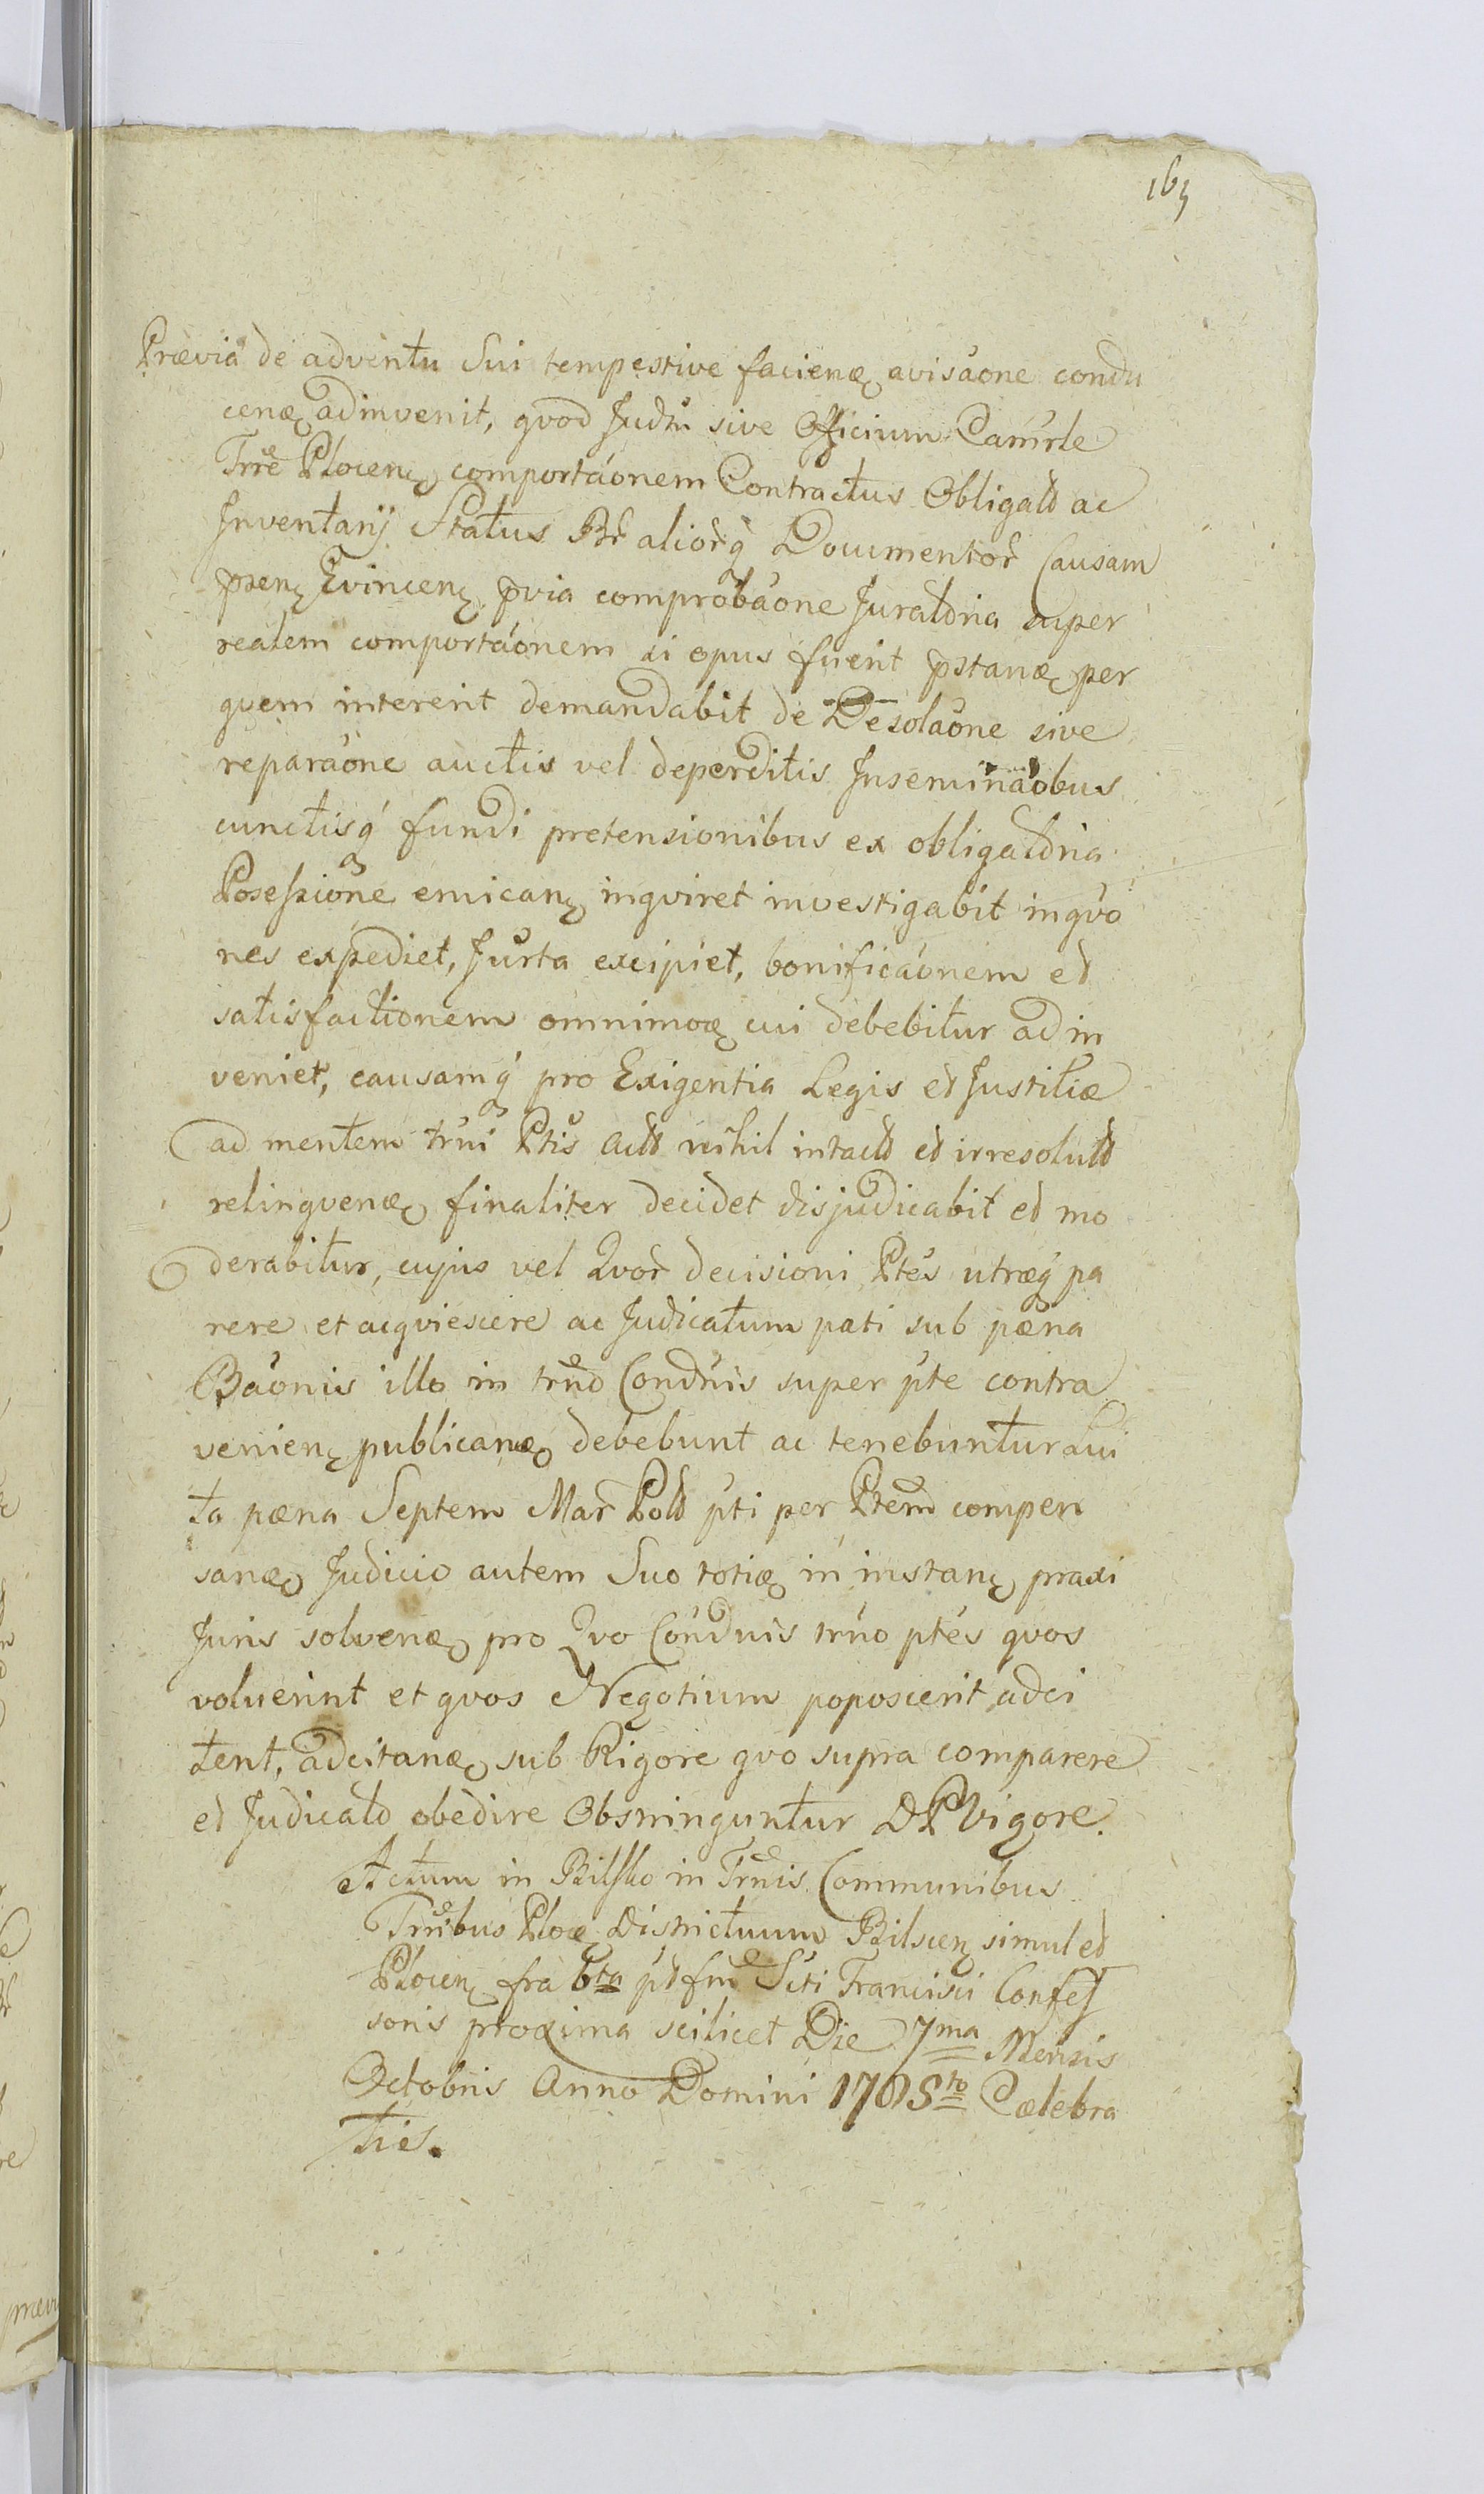 163
Prævia de adventu Sui tempestive facienæ avisáone condu
cenæ adinvenit, qvod Judm̃ sive Officium Camr̃le
Trrẽ Plocen̨ comportáonem Contractus Obligat̃ð ac
Inventarij Status Br̃ aliorq́ Documentor̃ Causam
p̃sen̨ Evincen̨ p̃via comprobáone Juratória super
realem comportáonem si opus fuerit p̃stanæ per
qvem intererit demandabit de Desoláone sive
reparáone auctis vel deperditis Inseminaóbus
cunctisq́ fundi pretensionibus ex obligatória
Possessióne emican̨ inqviret investigabit inqvo
nes expediet, Jurta excipiet, bonificáonem et
satisfactionem omnimoæ cui debebitur ad in
veniet, causamq́ pro Exigentia Legis et Justitiæ
ad mentem trui Ptis nihil intact̃ð et irresolut̃ð
relinqvenæ finaliter decidet disjudicabit et mo
derabitur, cujus vel Qvor̃ decisioni Ptés utræq́ pa
rere et acqviescere ac Judicatum pati sub pæna
Báonis illo in trñð Condñis super pte contra
venien̨ publicanæ debebunt ac tenebuntur Lui
ta pæna Septem Mar̃ Pol̃ð pti per Ptem̃ compen
sanæ Judicio autem Suo totiæ in instan̨ praxi
Juris solvenæ pro Qvo Condnis trño ptés qvos
voluerint et qvos Negotium poposcerit adci
tent, adcitanæ sub Rigore qvo supra comparere
et Judicat̃ð obedire Obstringuntur DP Vigore.
Actum in Bilsko in Trñis Communibus
Trribus Ploæ Districtuum Bilscen̨ simul et
Plocen̨ fra 6ta pðfm̃ Scti Francisci Confes
soris proxima scilicet Die 7ma Mensis
Octobris Anno Domini 1708to Cælebra
tis.